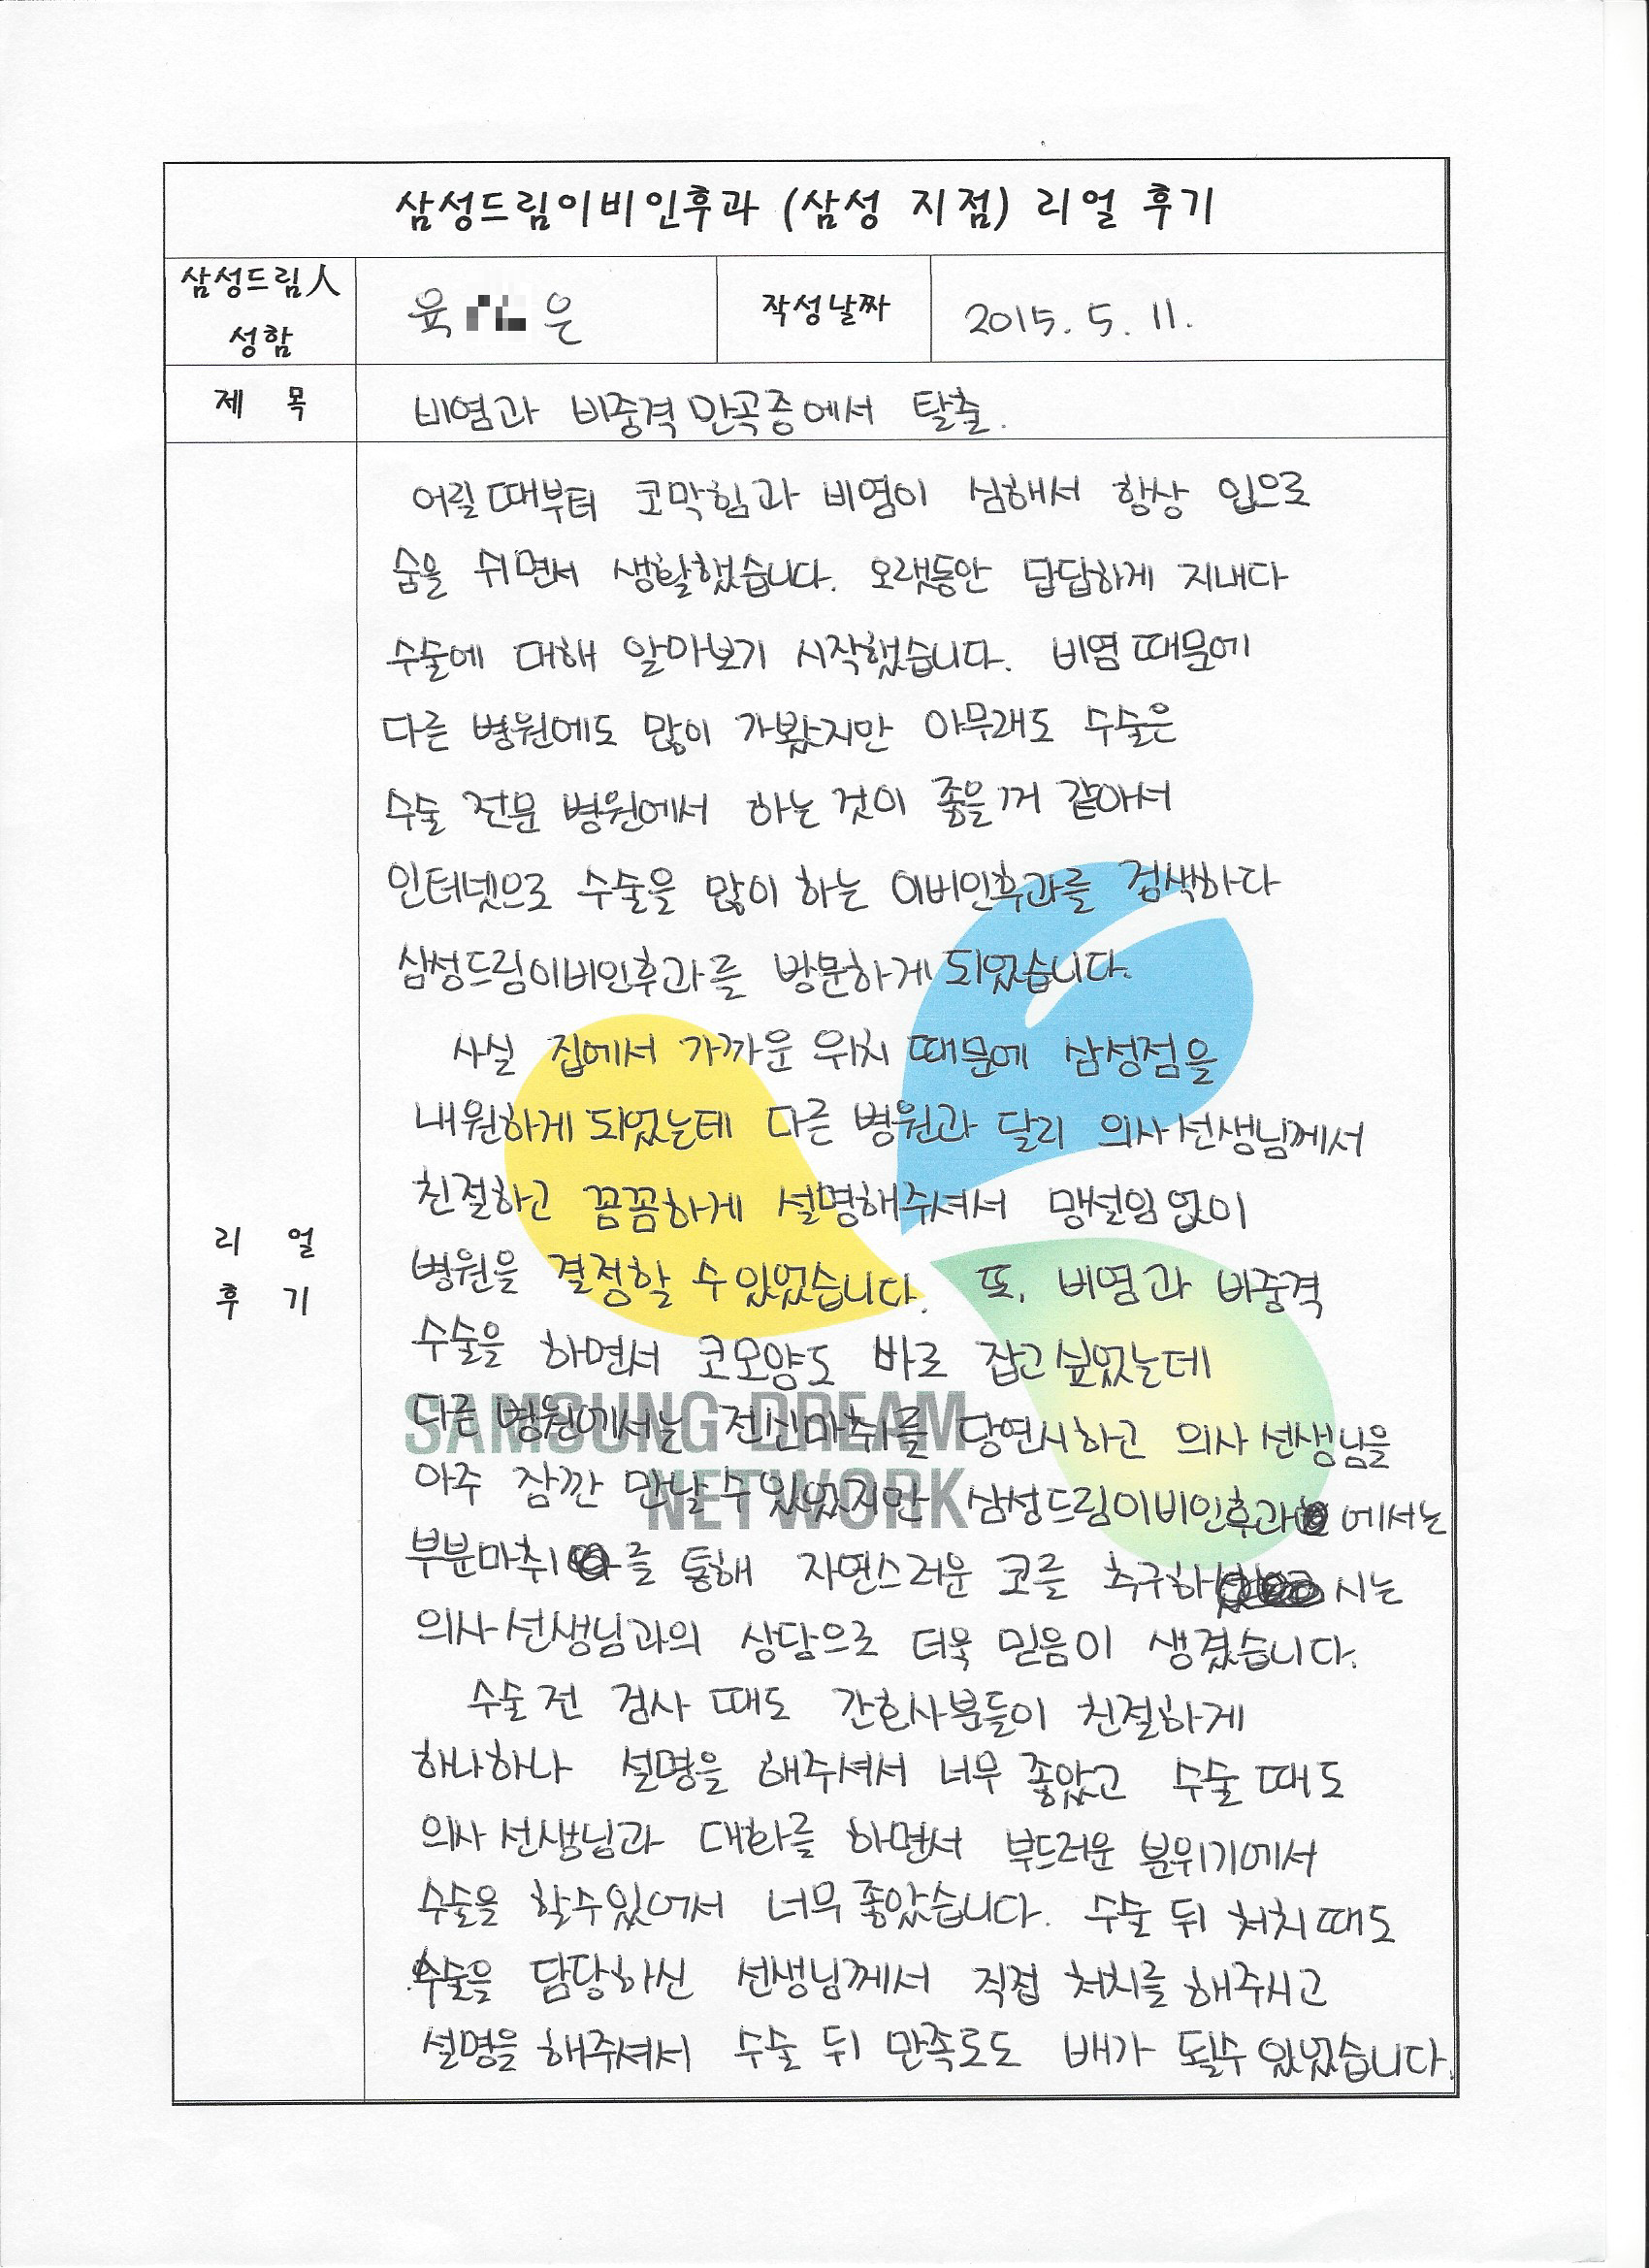 삼성드림이비인후과 (삼성 지점) 리얼 후기
삼성드림人
성함
육 은
작성날짜
2015. 5. 11.
제 목
비염과 비중격 만곡증에서 탈출.
리 얼
후 기
어릴 때부터 코막힘과 비염이 심해서 항상 입으로
숨을 쉬면서 생활했습니다. 오랫동안 답답하게 지내다
수술에 대해 알아보기 시작했습니다. 비염 때문에
다른 병원에도 많이 가봤지만 아무래도 수술은
수술 전문 병원에서 하는 것이 좋을꺼 같아서
인터넷으로 수술을 많이 하는 이비인후과를 검색하다
삼성드림이비인후과를 방문하게 되었습니다.
사실 집에서 가까운 위치 때문에 삼성점을
내원하게 되었는데 다른 병원과 달리 의사선생님께서
친절하고 꼼꼼하게 설명해주셔서 망설임 없이
병원을 결정할 수 있었습니다. 또, 비염과 비중격
수술을 하면서 코모양도 바로 잡고 싶었는데
다른 병원에서는 전신마취를 당연시하고 의사 선생님을
아주 잠깐 만날 수 있었지만 삼성드림이비인후과에서는
부분마취를 통해 자연스러운 코를 추구하시는
의사선생님과의 상담으로 더욱 믿음이 생겼습니다.
수술 전 검사 때도 간호사분들이 친절하게
하나하나 설명을 해주셔서 너무 좋았고 수술 때도
의사 선생님과 대화를 하면서 부드러운 분위기에서
수술을 할수있어서 너무 좋았습니다. 수술 뒤 처치 때도
수술을 담당하신 선생님께서 직접 처치를 해주시고
설명을 해주셔서 수술 뒤 만족도도 배가 될수 있었습니다.
SAMSUNG DREAM
NETWORK